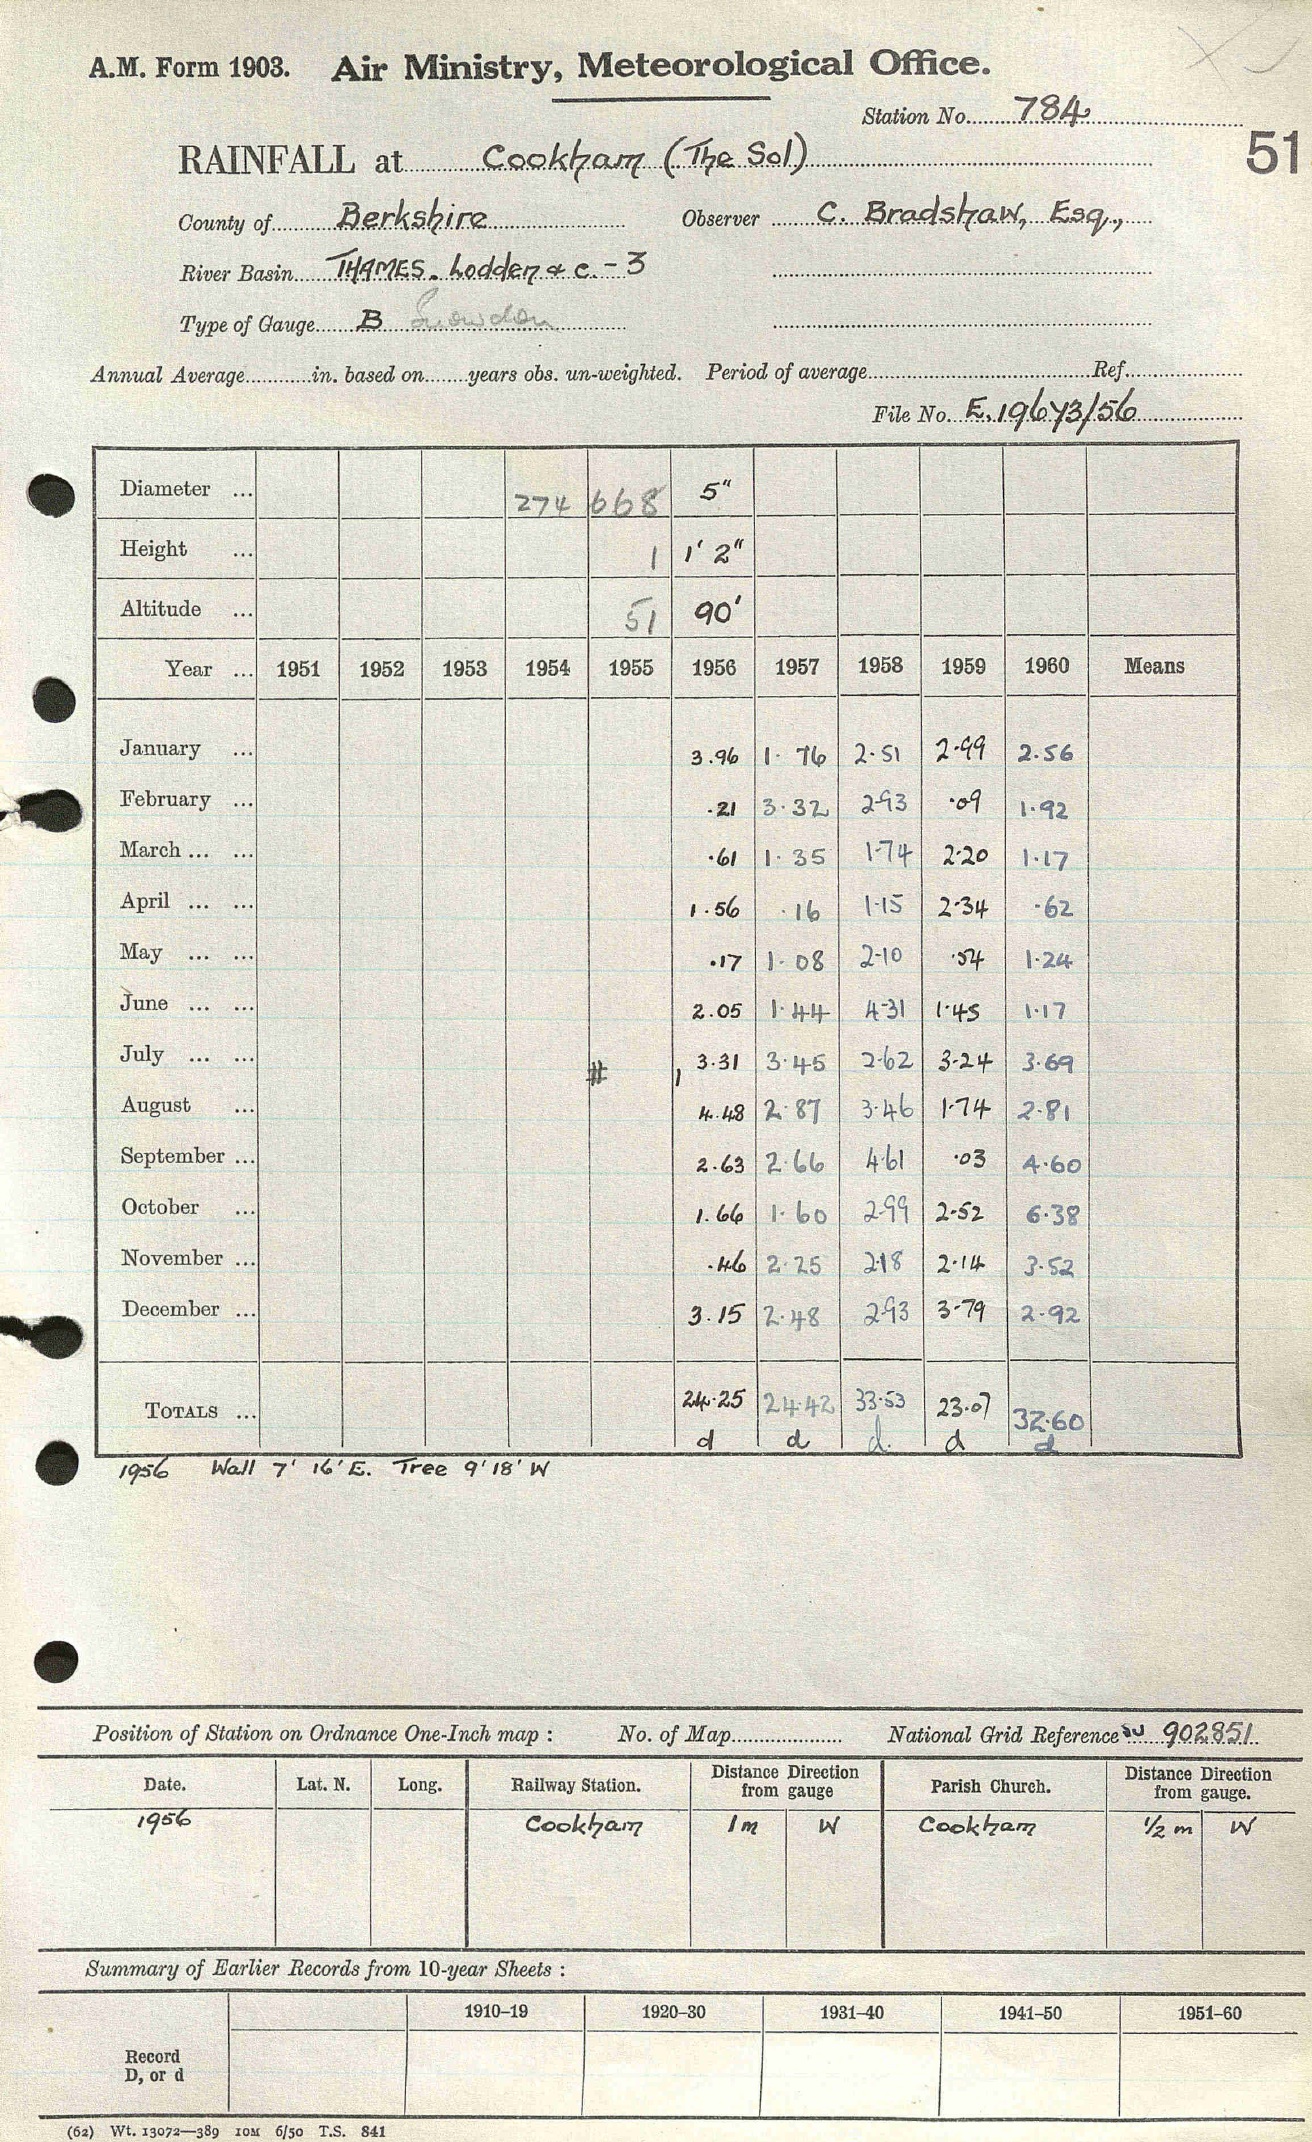 A.M. Form 1903. Air Ministry, Meteorological Office.
Station No. 784
51
RAINFALL at Cookham (The Sol)
County of Berkshire Observer C. Bradshaw, Esq.,
River Basin THAMES. Lodden & c. - 3
Type of Gauge B Snowdon
Annual Average in. based on years obs. un-weighted. Period of average Ref.
File No. E.19673/56
Diameter ... 274 668 5"
Height ... 1 1' 2"
Altitude ... 51 90'
Year ... 1951 1952 1953 1954 1955 1956 1957 1958 1959 1960 Means
January ... 3.96 1.76 2.51 2.99 2.56
February ... .21 3.32 2.93 .09 1.92
March ... ... .61 1.35 1.74 2.20 1.17
April ... ... 1.56 .16 1.15 2.34 .62
May ... ... .17 1.08 2.10 .54 1.24
June ... ... 2.05 1.44 4.31 1.45 1.17
July ... ... # 3.31 3.45 2.62 3.24 3.69
August ... 4.48 2.87 3.46 1.74 2.81
September ... 2.63 2.66 4.61 .03 4.60
October ... 1.66 1.60 2.99 2.52 6.38
November ... .46 2.25 2.18 2.14 3.52
December ... 3.15 2.48 2.93 3.79 2.92
TOTALS ... 24.25 24.42 33.53 23.07 32.60
d d d. d d
1956 Wall 7' 16' E. Tree 9' 18' W
Position of Station on Ordnance One-Inch map : No. of Map National Grid Reference SU 902851
Date. Lat. N. Long. Railway Station. Distance from gauge Direction Parish Church. Distance from gauge. Direction
1956 Cookham 1m W Cookham 1/2 m W
Summary of Earlier Records from 10-year Sheets :
1910–19 1920–30 1931–40 1941–50 1951–60
Record
D, or d
(62) Wt. 13072—389 10M 6/50 T.S. 841